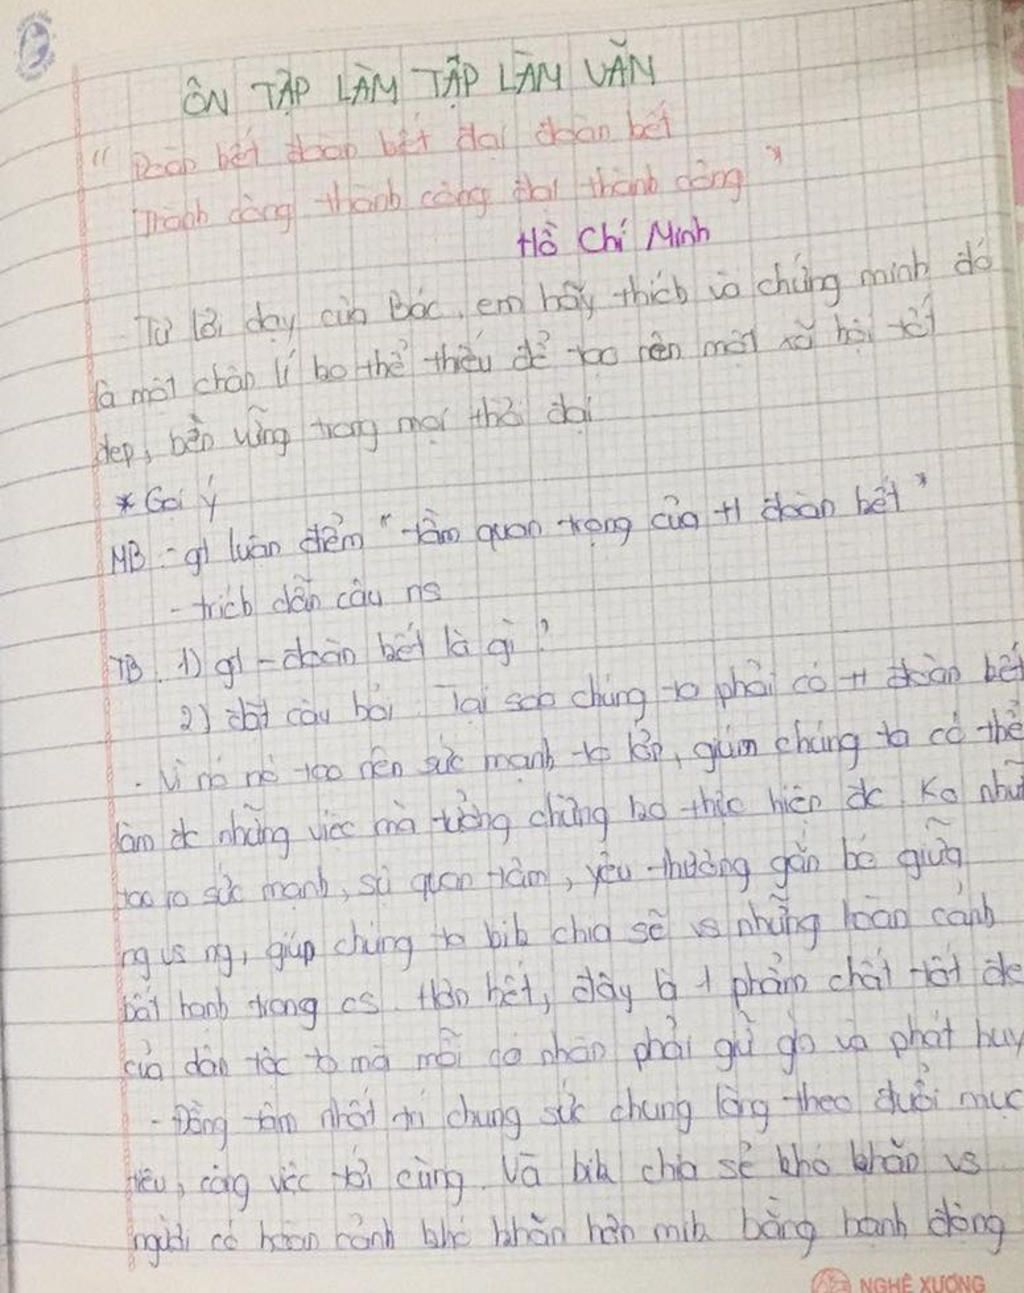 ÔN TẬP LÀM TẬP LÀM VĂN
"Đoàn kết đoàn kết đại đoàn kết
Thành công thành công đại thành công"
Hồ Chí Minh
Từ lời dạy của Bác, em hãy thích và chứng minh đó
là một chân lí ko thể thiếu để tạo nên một xã hội tốt
đẹp, bền vững trong mọi thời đại
* Gợi ý
MB - gt luận điểm "tầm quan trọng của tt đoàn kết"
- trích dẫn câu ns
TB. 1) gt - đoàn kết là gì?
2) đặt câu hỏi. Tại sao chúng ta phải có tt đoàn kết
- Vì nó nó tạo nên sức mạnh to lớn, giúm chúng ta có thể
làm đc những việc mà tưởng chừng ko thực hiện đc. Ko nhữ
tạo ra sức mạnh, sự quan tâm, yêu thương gắn bó giữa
ng vs ng, giúp chúng ta bik chia sẽ vs những hoàn cảnh
bất hạnh trong cs. Hơn hết, đây là 1 phẩm chất tốt đẹ
của dân tộc ta mà mỗi cá nhân phải giữ gìn và phát huy
- Đồng tâm nhất trí chung sức chung lòng theo đuổi mục
tiêu, công việc tới cùng. Và bik chia sẻ khó khăn vs
người có hoàn cảnh khó khăn hơn mik bằng hành động
NGHÊ XƯƠNG